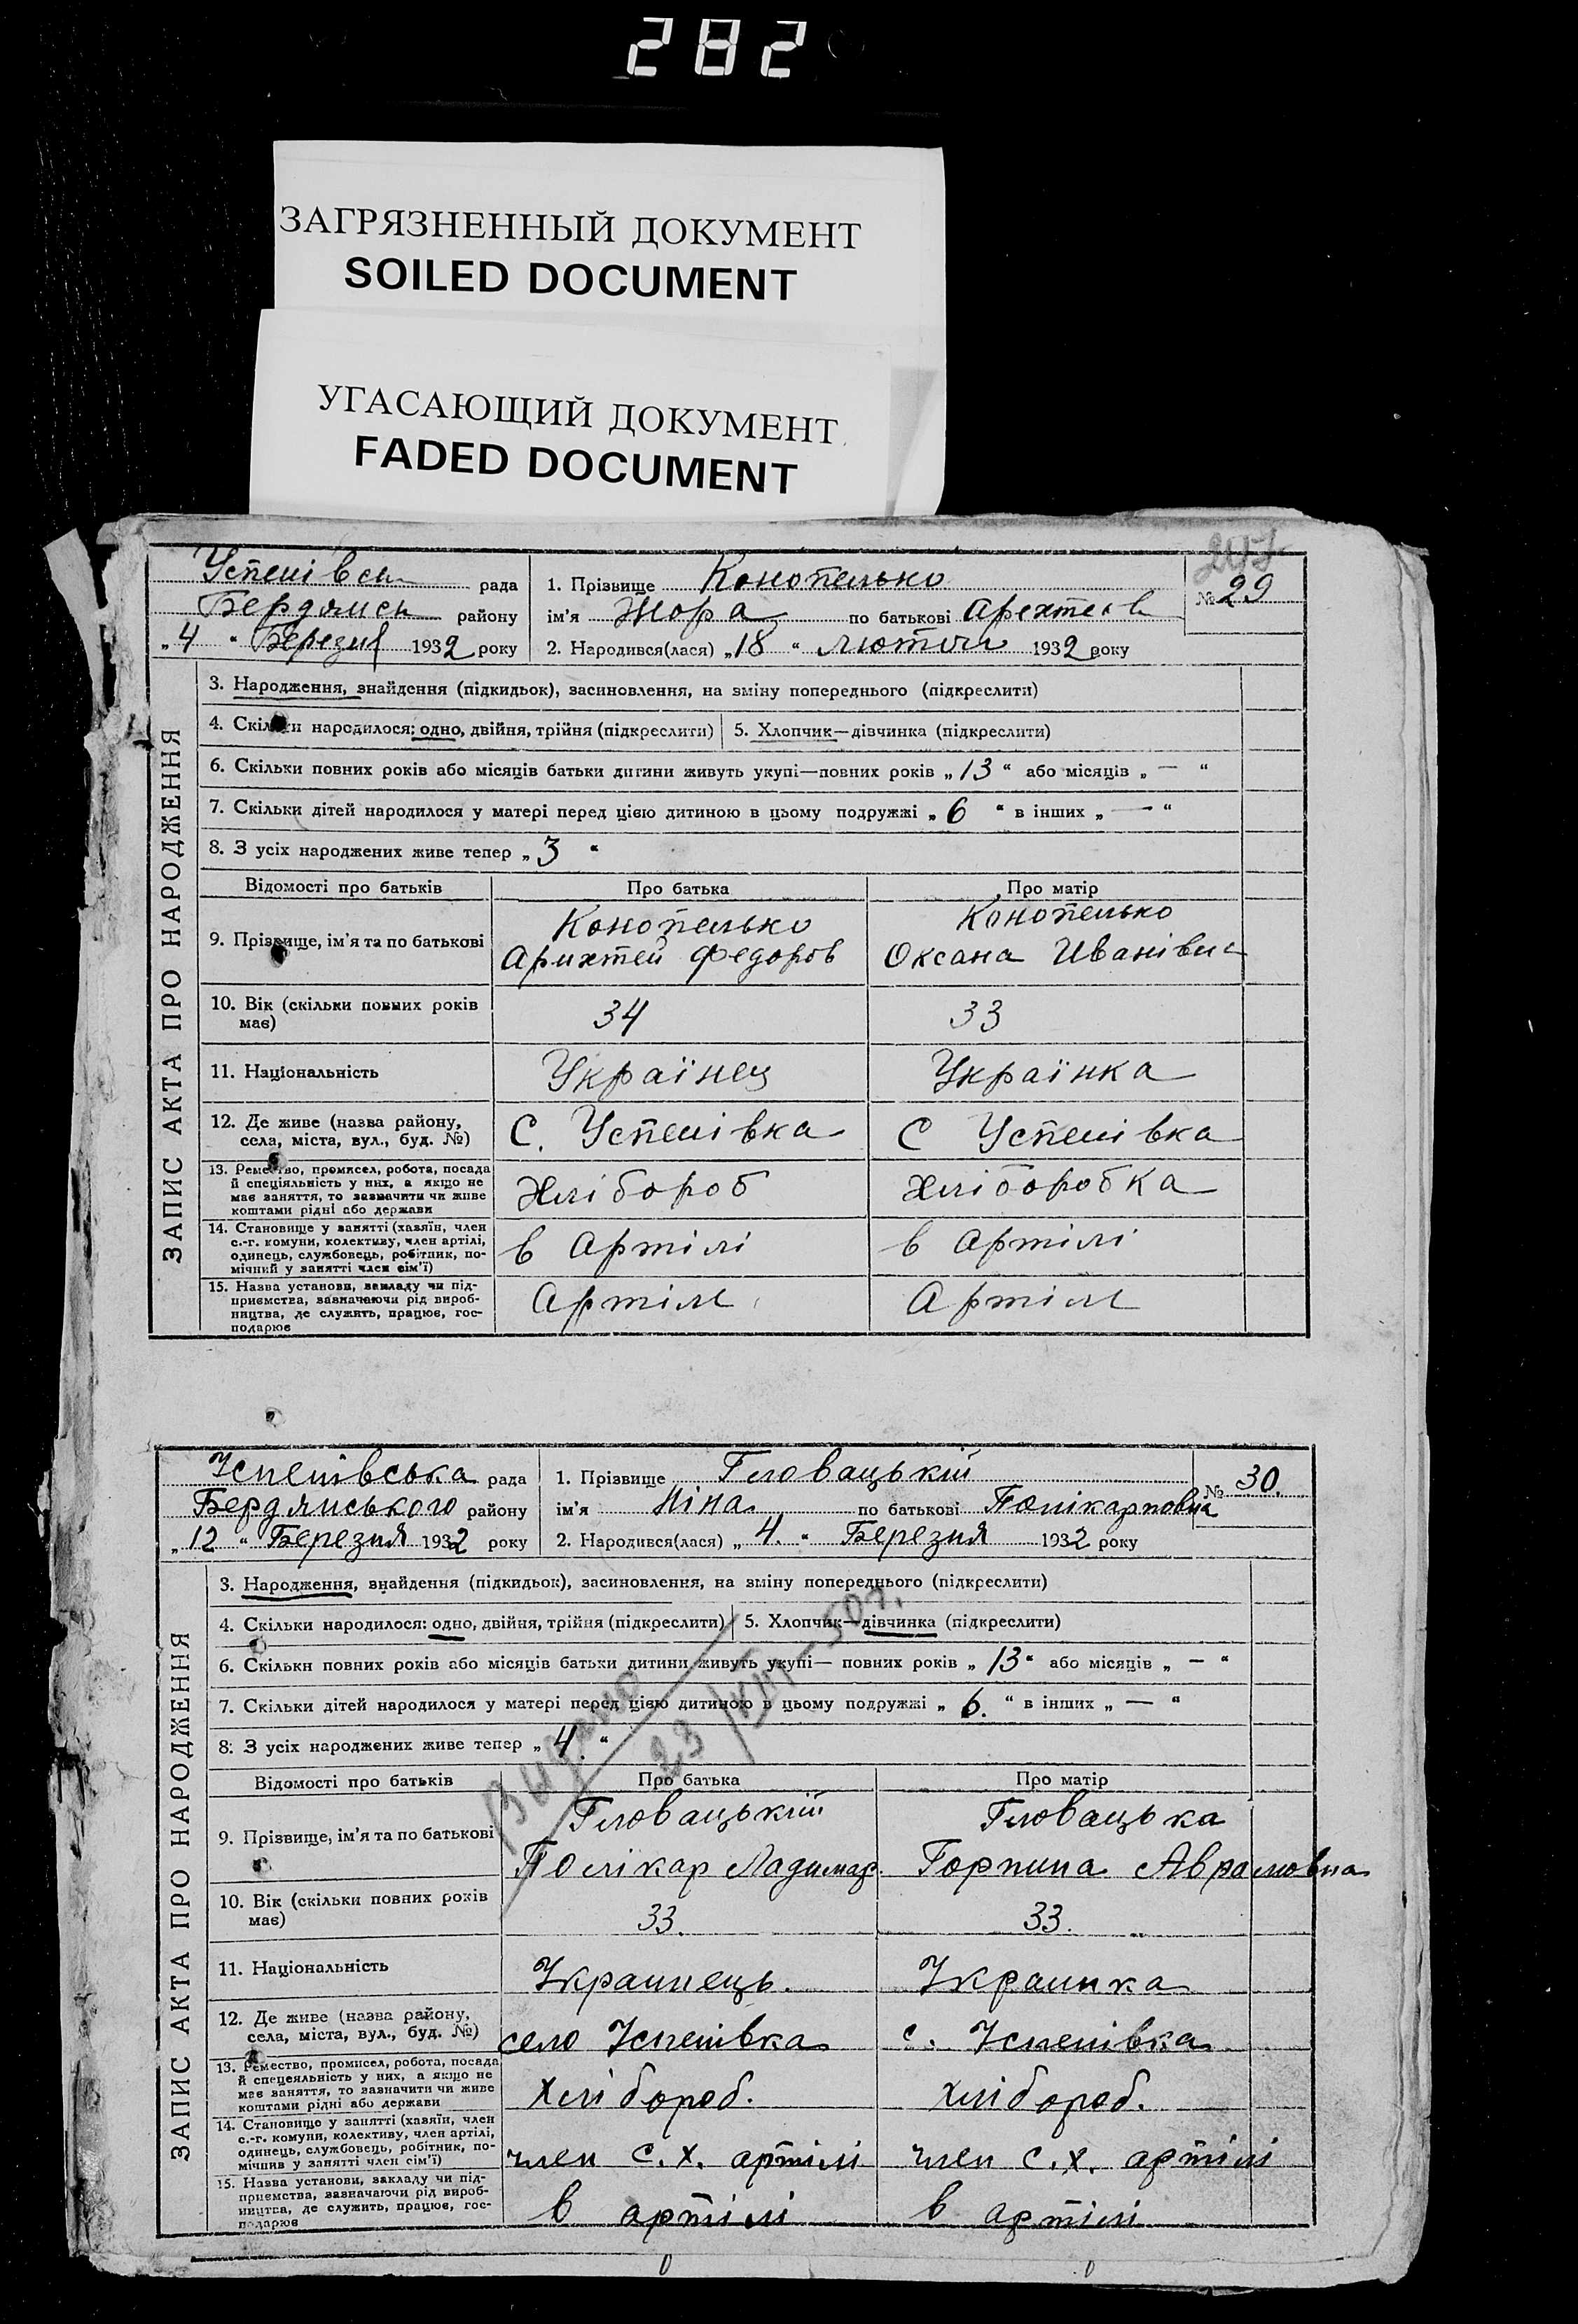 282
ЗАГРЯЗНЕННЫЙ ДОКУМЕНТ
SOILED DOCUMENT
УГАСАЮЩИЙ ДОКУМЕНТ
FADED DOCUMENT
Успенівськ рада
Бердянськ району
„4“ Березня 1932 року
1. Прізвище Конопелько
ім'я Жора по батькові Арехтеєв
2. Народився(лася) „18“ лютого 1932 року
№ 29
ЗАПИС АКТА ПРО НАРОДЖЕННЯ
3. Народження, знайдення (підкидьок), засиновлення, на зміну попереднього (підкреслити)
4. Скільки народилося: одно, двійня, трійня (підкреслити) 5. Хлопчик—дівчинка (підкреслити)
6. Скільки повних років або місяців батьки дитини живуть укупі—повних років „13“ або місяців „—“
7. Скільки дітей народилося у матері перед цією дитиною в цьому подружжі „6“ в інших „—“
8. З усіх народжених живе тепер „3“
Відомості про батьків Про батька Про матір
9. Прізвище, ім'я та по батькові
Конопелько Конопелько
Арихтей Федоров Оксана Иванівна
10. Вік (скільки повних років
має)
34 33
11. Національність Українец Українка
12. Де живе (назва району,
села, міста, вул., буд. №)
С. Успенівка С Успенівка
13. Ремество, промисел, робота, посада
й спеціяльність у них, а якщо не
має заняття, то зазначити чи живе
коштами рідні або держави
Хлібороб Хліборобка
14. Становище у занятті (хазяїн, член
с.-г. комуни, колективу, член артілі,
одинець, службовець, робітник, по-
мічний у занятті член сім'ї)
в Артілі в Артілі
15. Назва установи, закладу чи під-
приємства, зазначаючи рід вироб-
ництва, де служить, працює, гос-
подарює
Артіль Артіль
Успенівська рада
Бердянського району
„12“ Березня 1932 року
1. Прізвище Гловацькій
ім'я Ніна по батькові Полікарповна
2. Народився(лася) „4.“ Березня 1932 року
№ 30.
ЗАПИС АКТА ПРО НАРОДЖЕННЯ
3. Народження, знайдення (підкидьок), засиновлення, на зміну попереднього (підкреслити)
4. Скільки народилося: одно, двійня, трійня (підкреслити) 5. Хлопчик—дівчинка (підкреслити)
6. Скільки повних років або місяців батьки дитини живуть укупі— повних років „13“ або місяців „—“
7. Скільки дітей народилося у матері перед цією дитиною в цьому подружжі „6.“ в інших „—“
8. З усіх народжених живе тепер „4.“
Видано
23/
50 г.
Відомості про батьків Про батька Про матір
9. Прізвище, ім'я та по батькові
Гловацькій Гловацька
Полікар Ладимар. Горпина Аврамовна
10. Вік (скільки повних років
має)
33. 33.
11. Національність Украинець. Украинка
12. Де живе (назва району,
села, міста, вул., буд. №)
село Успенівка с. Успенівка
13. Ремество, промисел, робота, посада
й спецеяльність у них, а якщо не
має заняття, то зазначити чи живе
коштами рідні або держави
Хлібороб. Хлібороб.
14. Становище у занятті (хазяїн, член
с.-г. комуни, колективу, член артілі,
одинець, службовець, робітник, по-
мічнив у занятті член сім'ї)
член с.х. артілі член с.х. артілі
15. Назва установи, закладу чи під-
приємства, зазначаючи рід вироб-
ництва, де служить, працює, гос-
подарює
в артілі в артілі